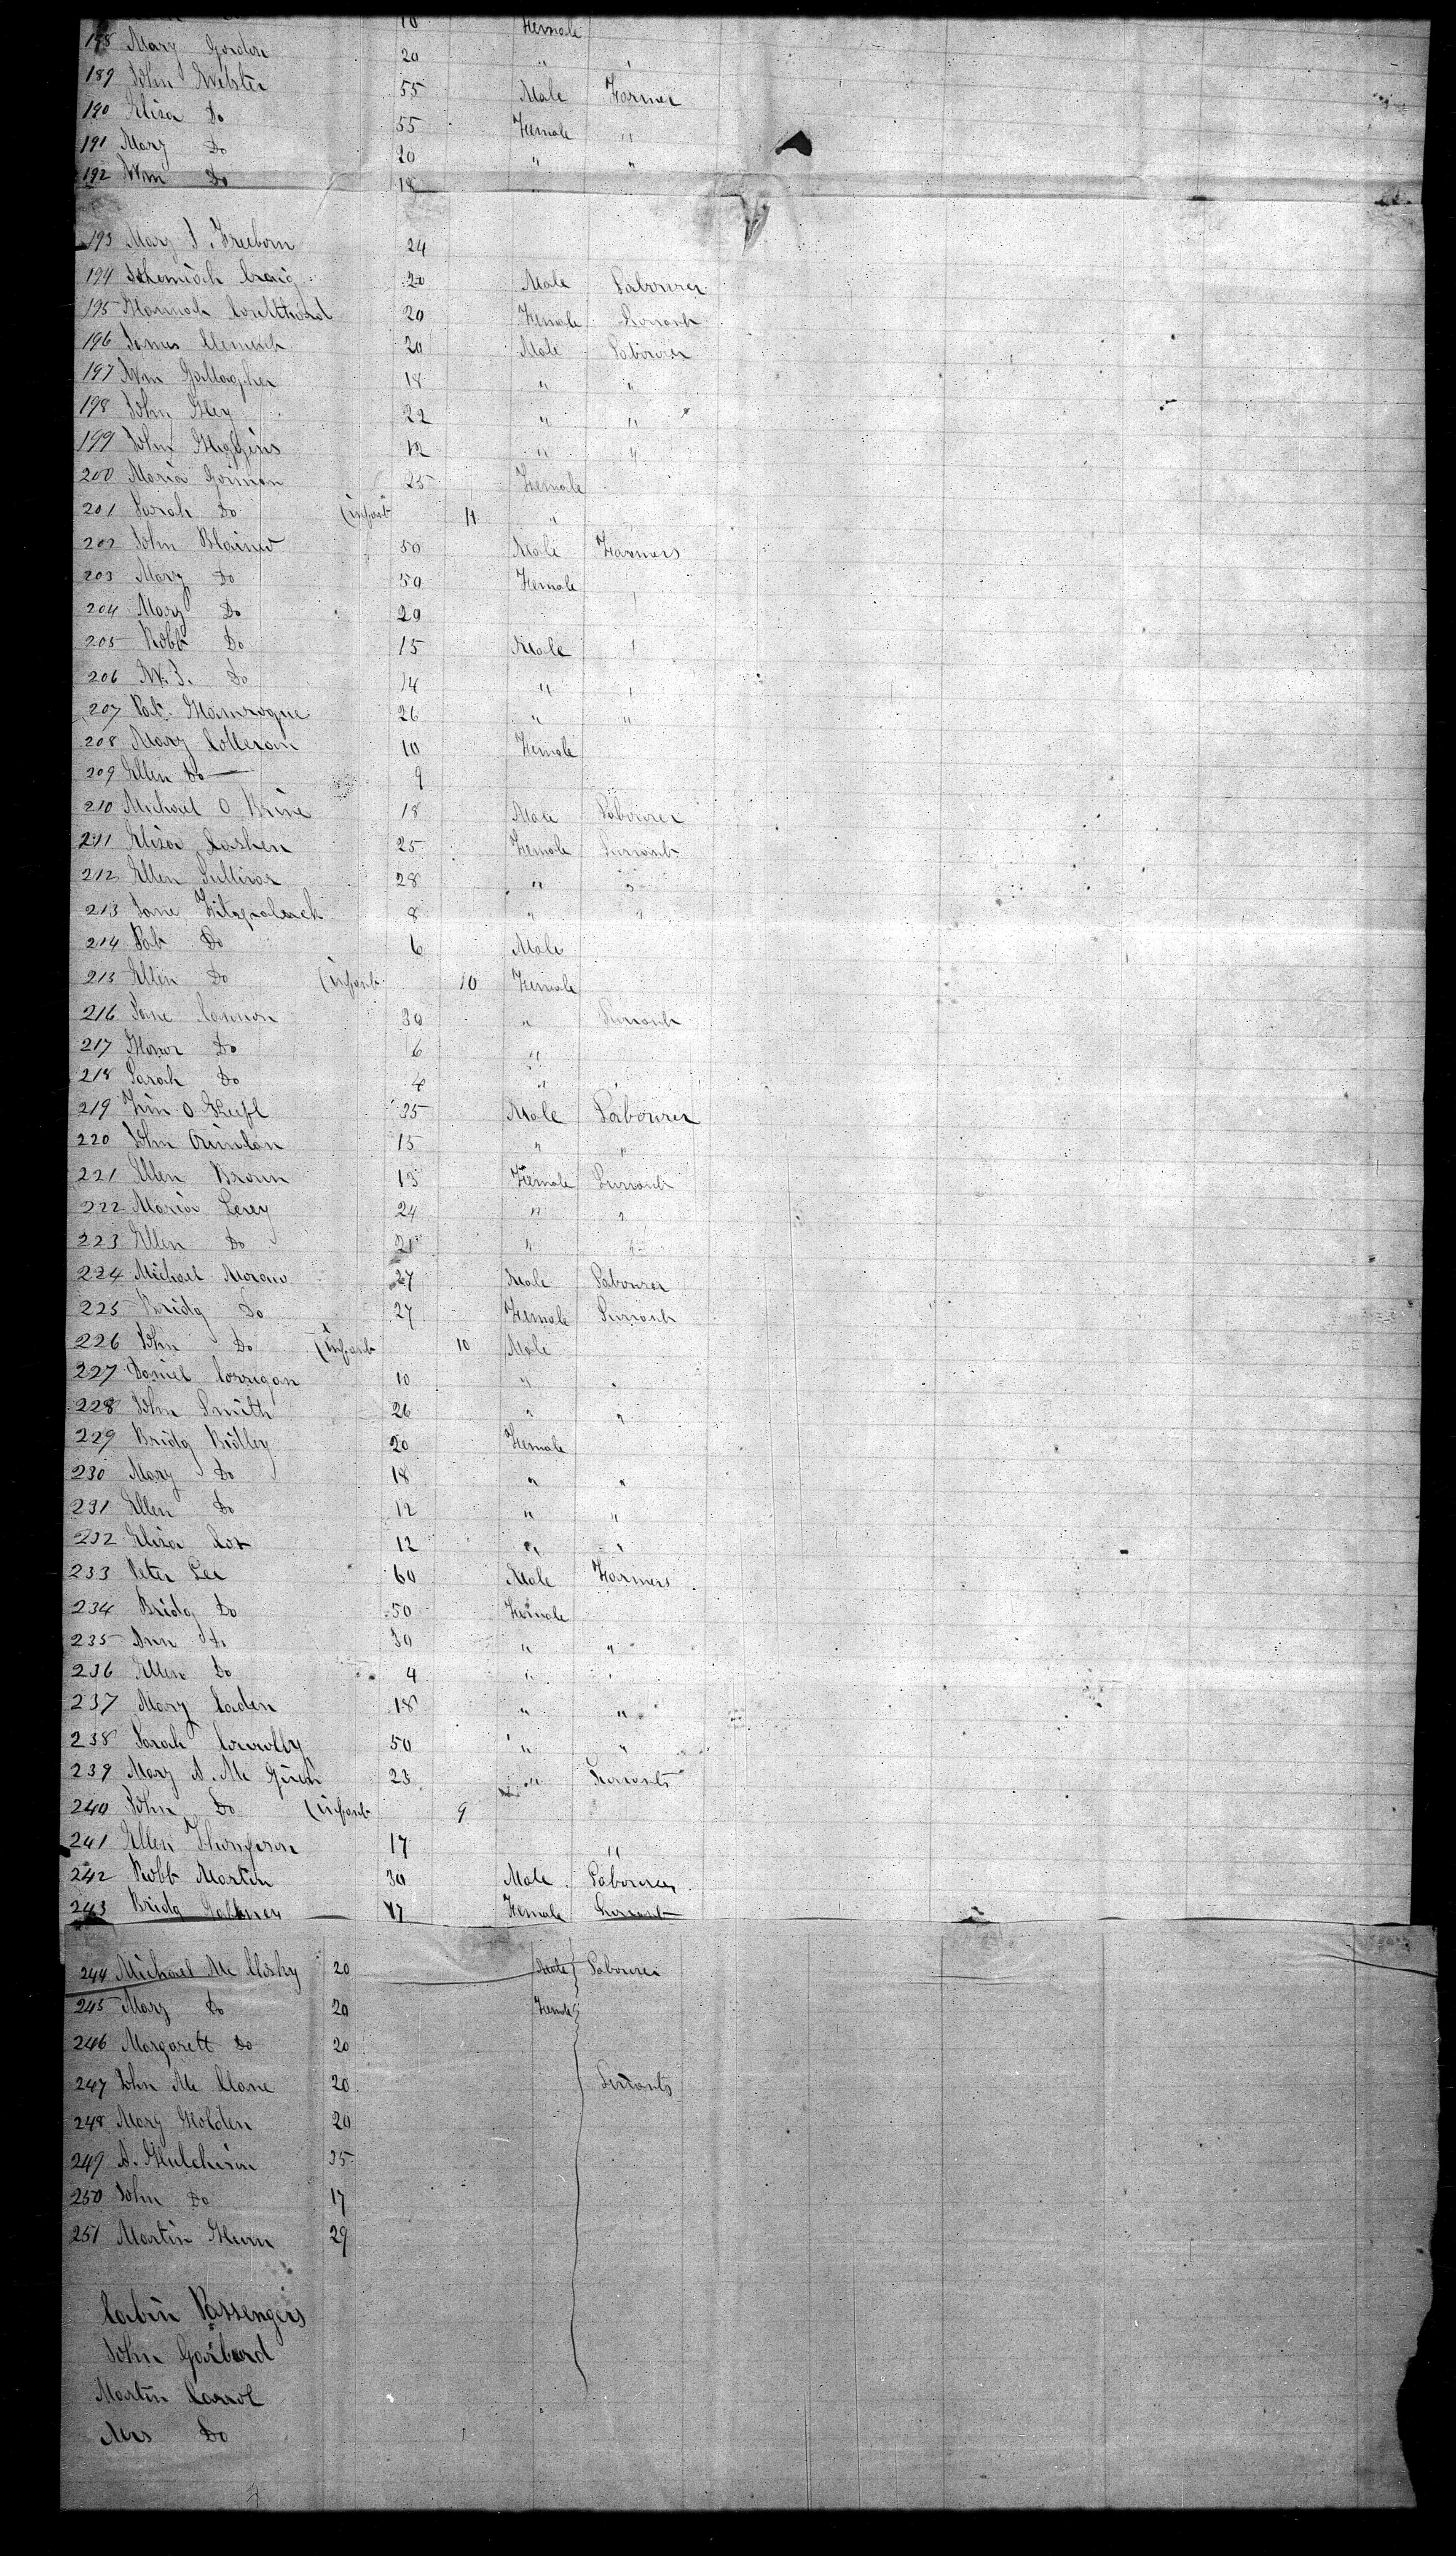 10 Female
188 Mary Gordon 20 " "
189 John Webster 55 Male Farmer
190 Eliza Do 55 Female "
191 Mary Do 20 " "
192 Wm Do 18
193 Mary J. Freeborn 24
194 Craig 20 Male Labourer
195 Hannah Coulthard 20 Female Servant
196 James 20 Male Labourer
197 Wm Gallagher 18 " "
198 John 22 " "
199 John Higgins 12 " "
200 Maria Gorman 25 Female
201 Sarah Do (infant 11 "
202 John Blaine 50 Male Farmers
203 Mary Do 50 Female
204 Mary Do 20
205 Robt Do 15 Male "
206 W. J. Do 14 " "
207 Pat. 26 " "
208 Mary Colleran 10 Female
209 Ellen Do 9
210 Michael O Brine 18 Male Labourer
211 Eliza Cashen 25 Female Servant
212 Ellen Sullivan 28 " "
213 Jane Fitzpatrick 8 " "
214 Pat Do 6 Male
215 Ellen Do (infant 10 Female
216 Jane Cannon 30 " Servant
217 Do 6 "
218 Sarah Do 4 "
219 O 35 Male Labourer
220 John 15 " "
221 Ellen Brown 13 Female Servant
222 Maria 24 " "
223 Ellen Do 21 " "
224 Michael Moran 27 Male Labourer
225 Bridg Do 27 Female Servant
226 John Do (infant 10 Male
227 Daniel Corrigan 10 " "
228 John Smith 26 " "
229 Bridg Ridley 20 Female
230 Mary Do 18 " "
231 Ellen Do 12 " "
232 Eliza 12 " "
233 Peter Lee 60 Male Farmers
234 Bridg Do 50 Female
235 Ann Do 30 " "
236 Ellen Do 4 " "
237 Mary Caden 18 " "
238 Sarah Connolly 50 " "
239 Mary A. Mc 23 " Servants
240 John Do (infant 9
241 Ellen Thompson 17 "
242 Robt Martin 30 Male Labourer
243 Bridg 17 Female Servant
244 Michael Mc Closky 20 Male Labourer
245 Mary Do 20 Female
246 Margarett Do 20
247 John Mc Clane 20 Servants
248 Mary Holden 20
249 A. Hutchison 35
250 John Do 17
251 Martin 29
Cabin Passengers
John
Martin Carrol
Mrs Do